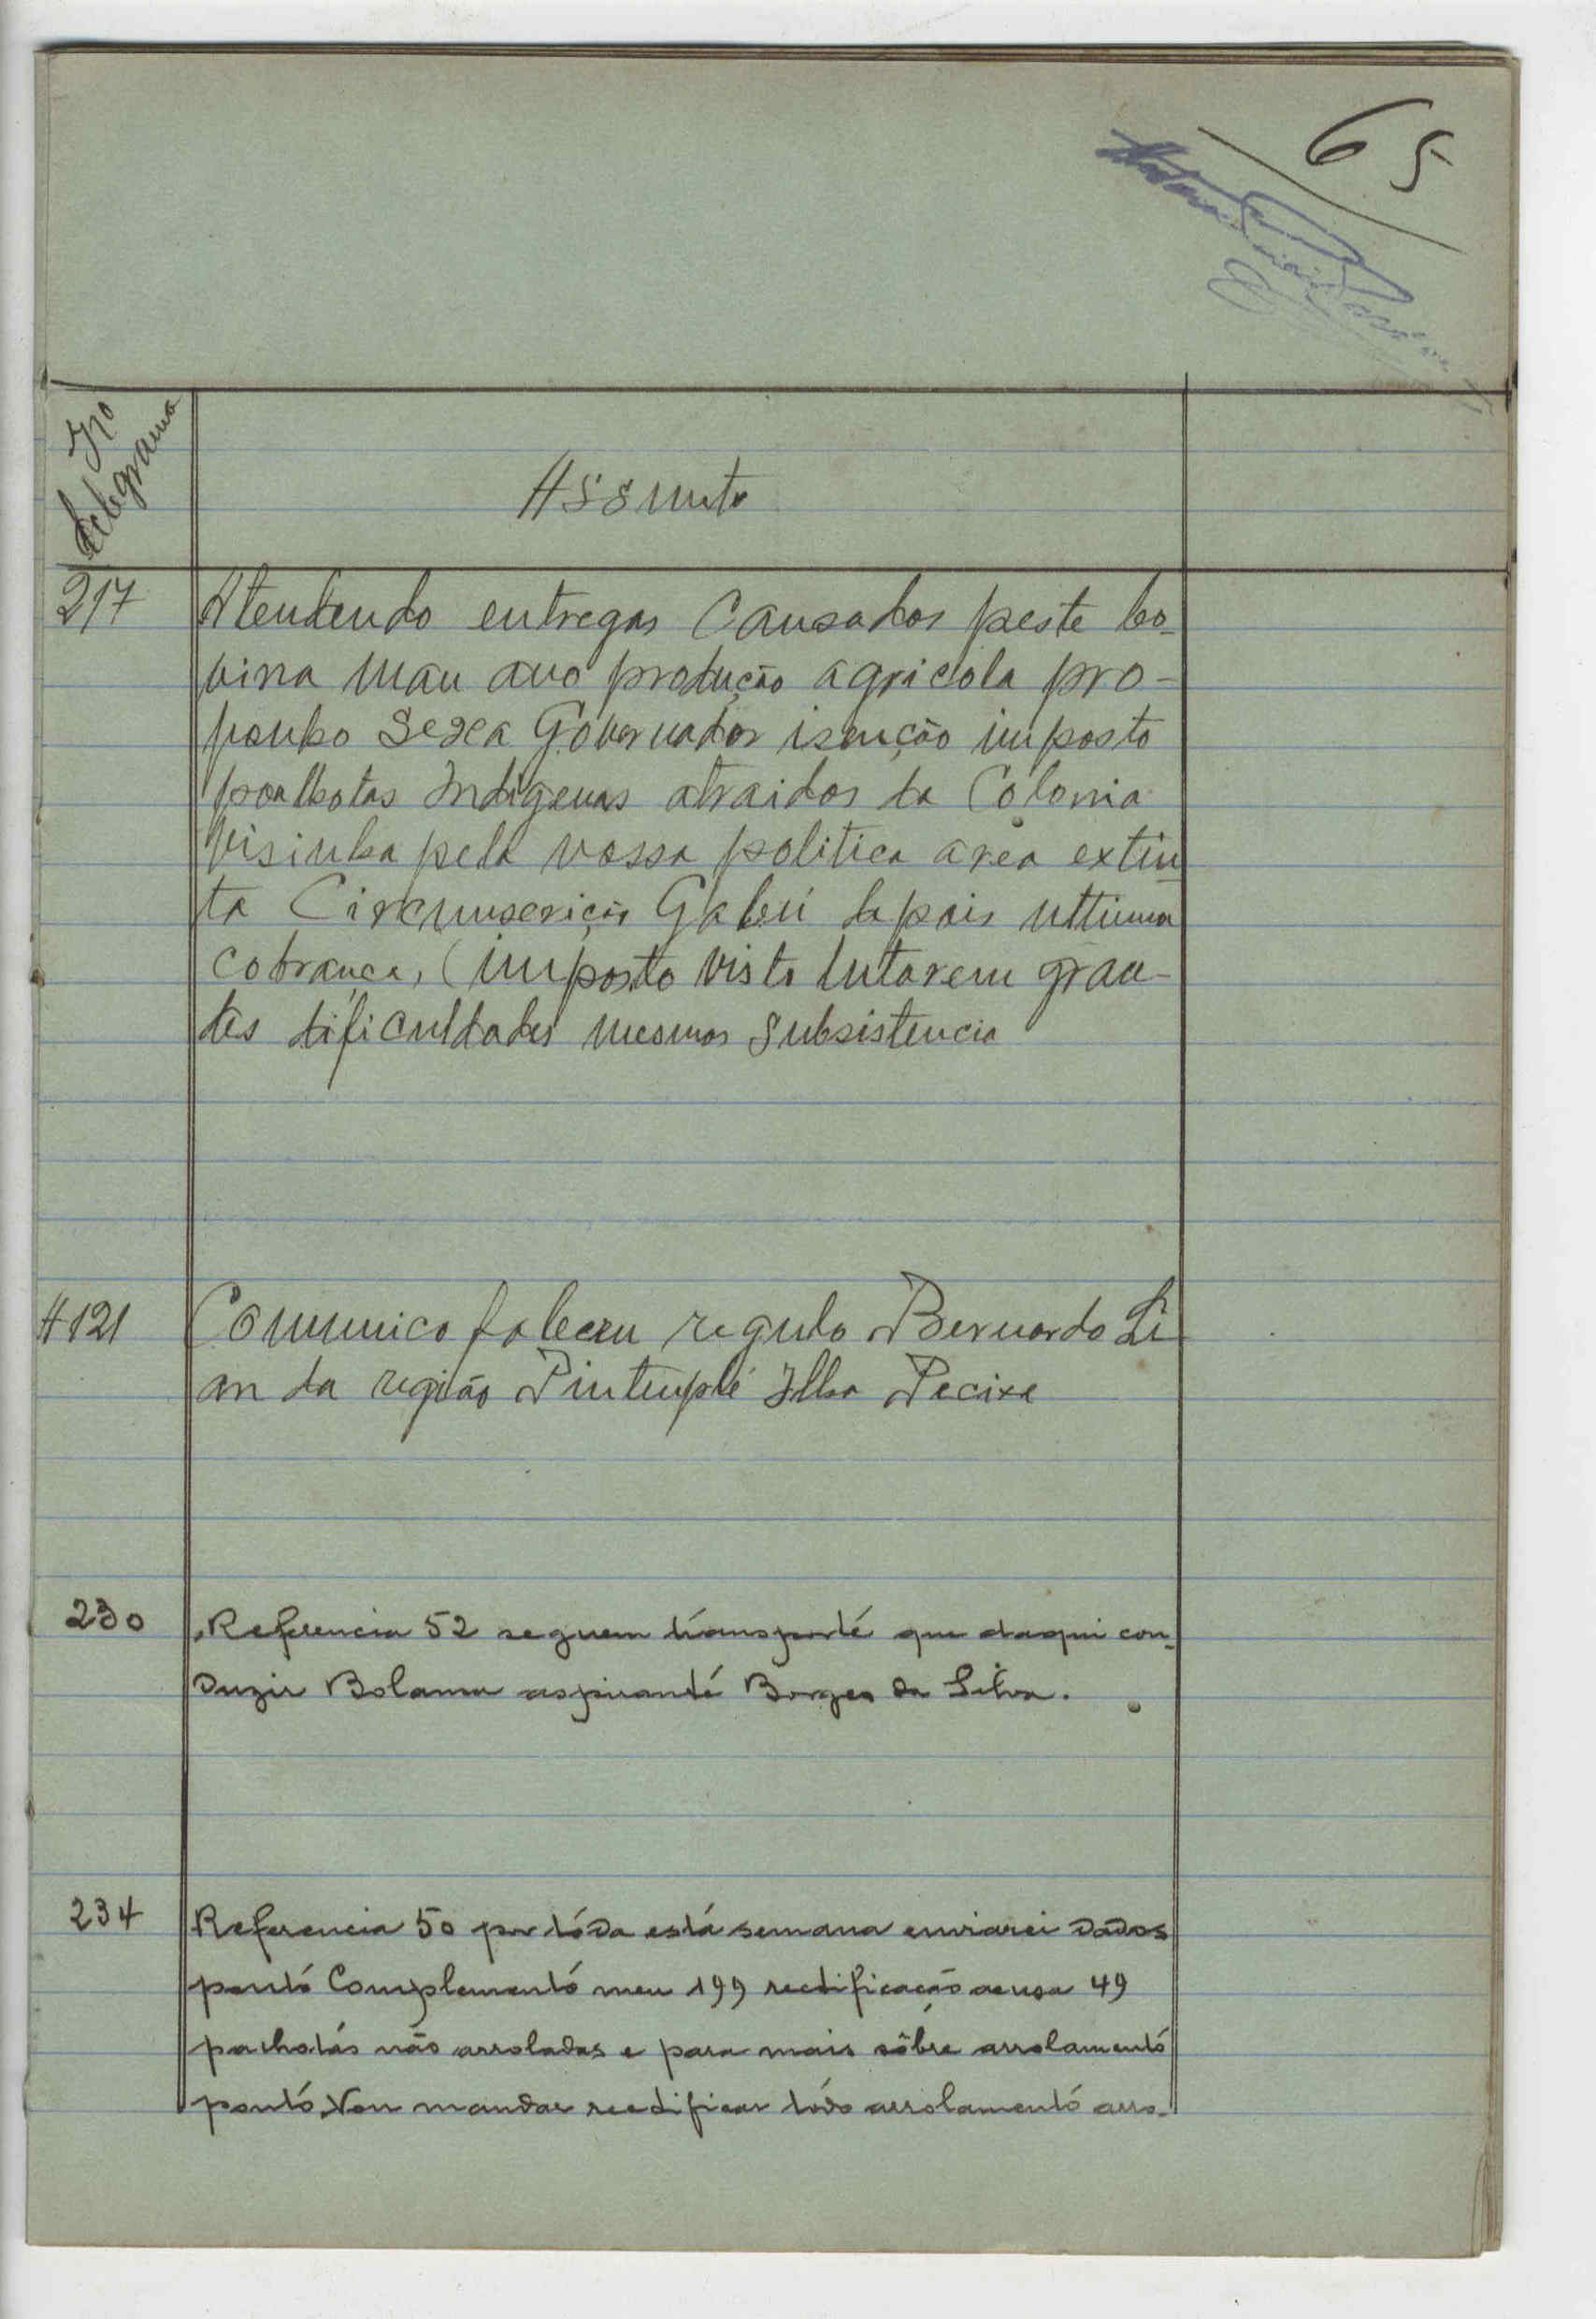 65
No telegrama
Assunto
217 Atendendo entregas Causados peste bo-
vina mau ano produção agricola pro-
ponho Sexa Governador isenção imposto
poalhotas Indigenas atraidos da Colonia
visinha pela vossa politica area extin-
ta Circunscrição Gabú depois ultima
cobrança, imposto visto lutarem gran-
des dificuldades mesmos Subsistencia
#121 Comunico faleceu regulo Bernardo
da região Ilha Pecixe
230 Referencia 52 seguem transporté que daqui con-
duzir Bolama aspiranté Borges da Silva.
234 Referencia 50 por tóda está semana enviarei dados
pontó Complementó meu 199 rectificação acusa 49
palhotás não arroladas e para mais sôbre arrolamentó
pontó Vou mandar rectificar tódo arrolamentó arro-